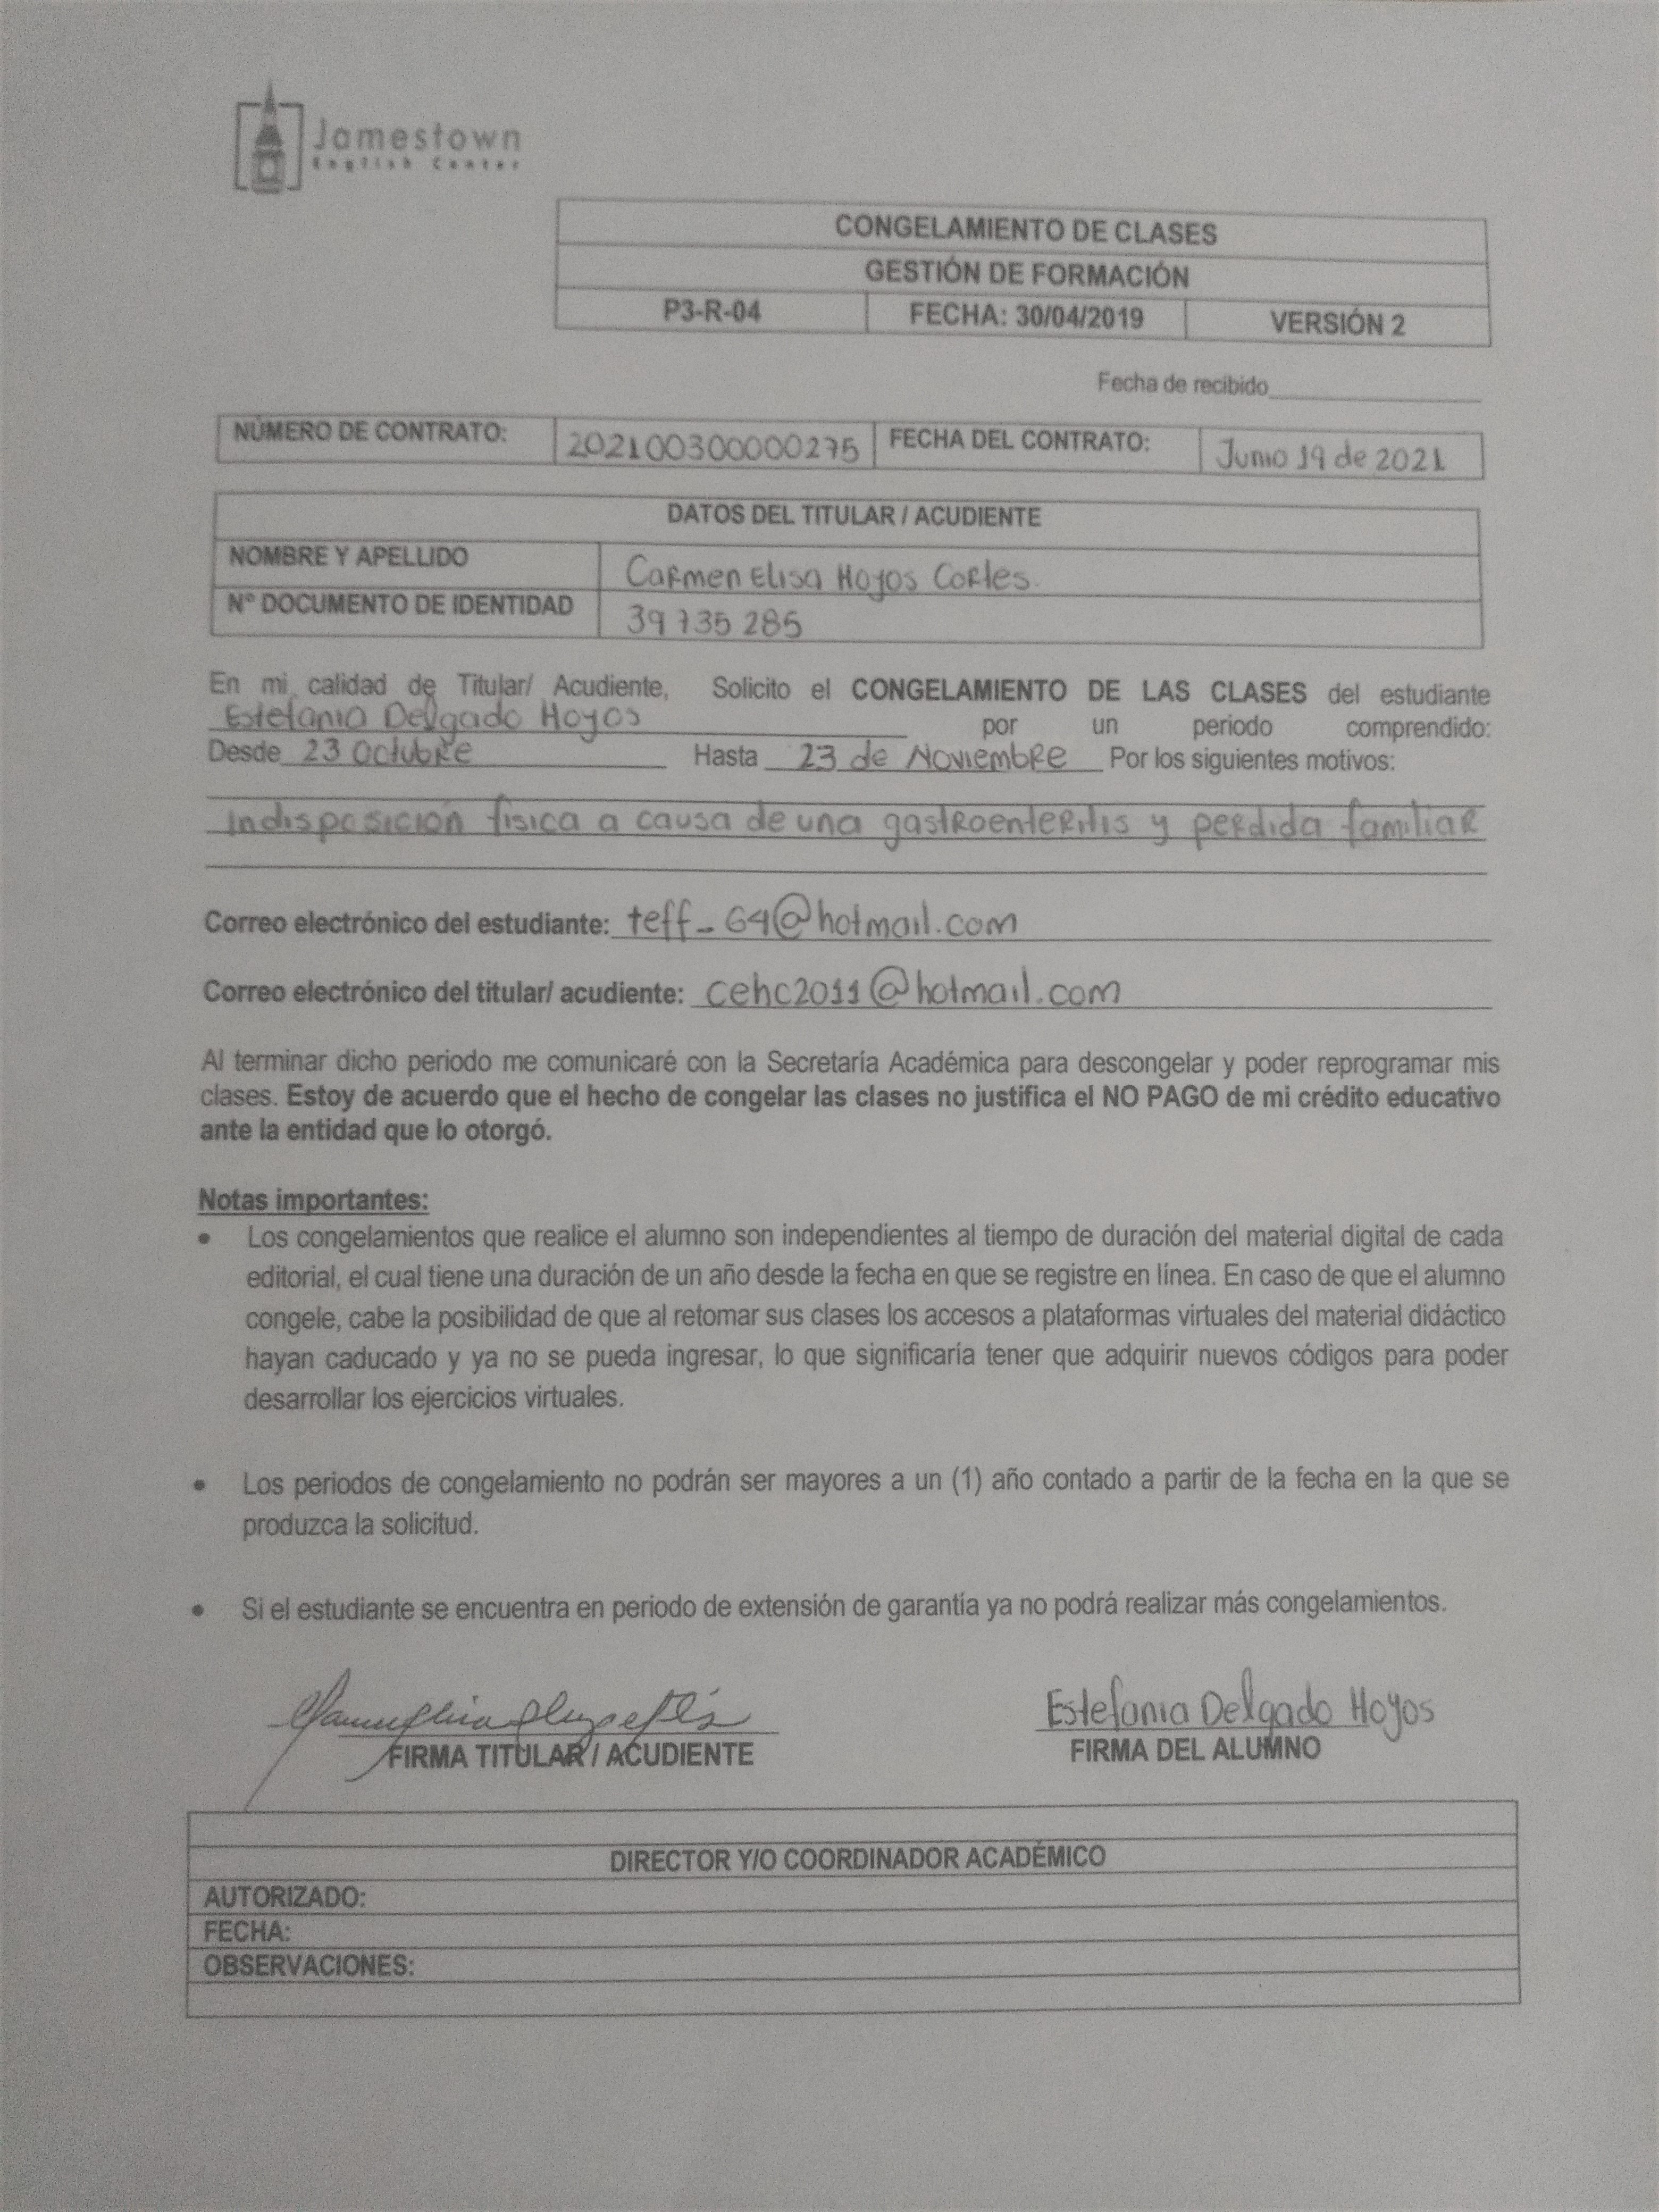 Jamestown
English Center
CONGELAMIENTO DE CLASES
GESTIÓN DE FORMACIÓN
P3-R-04 FECHA: 30/04/2019 VERSIÓN 2
Fecha de recibido
NÚMERO DE CONTRATO: 202100300000275 FECHA DEL CONTRATO: Junio 19 de 2021
DATOS DEL TITULAR / ACUDIENTE
NOMBRE Y APELLIDO Carmen Elisa Hoyos Cortes.
N° DOCUMENTO DE IDENTIDAD 39 735 285
En mi calidad de Titular/ Acudiente, Solicito el CONGELAMIENTO DE LAS CLASES del estudiante
Estefania Delgado Hoyos por un periodo comprendido:
Desde 23 Octubre Hasta 23 de Noviembre Por los siguientes motivos:
indisposición física a causa de una gastroenteritis y perdida familiar
Correo electrónico del estudiante: teff_64@hotmail.com
Correo electrónico del titular/ acudiente: cehc2011@hotmail.com
Al terminar dicho periodo me comunicaré con la Secretaría Académica para descongelar y poder reprogramar mis
clases. Estoy de acuerdo que el hecho de congelar las clases no justifica el NO PAGO de mi crédito educativo
ante la entidad que lo otorgó.
Notas importantes:
• Los congelamientos que realice el alumno son independientes al tiempo de duración del material digital de cada
editorial, el cual tiene una duración de un año desde la fecha en que se registre en línea. En caso de que el alumno
congele, cabe la posibilidad de que al retomar sus clases los accesos a plataformas virtuales del material didáctico
hayan caducado y ya no se pueda ingresar, lo que significaría tener que adquirir nuevos códigos para poder
desarrollar los ejercicios virtuales.
• Los periodos de congelamiento no podrán ser mayores a un (1) año contado a partir de la fecha en la que se
produzca la solicitud.
• Si el estudiante se encuentra en periodo de extensión de garantía ya no podrá realizar más congelamientos.
Estefania Delgado Hoyos
FIRMA TITULAR / ACUDIENTE FIRMA DEL ALUMNO
DIRECTOR Y/O COORDINADOR ACADÉMICO
AUTORIZADO:
FECHA:
OBSERVACIONES: